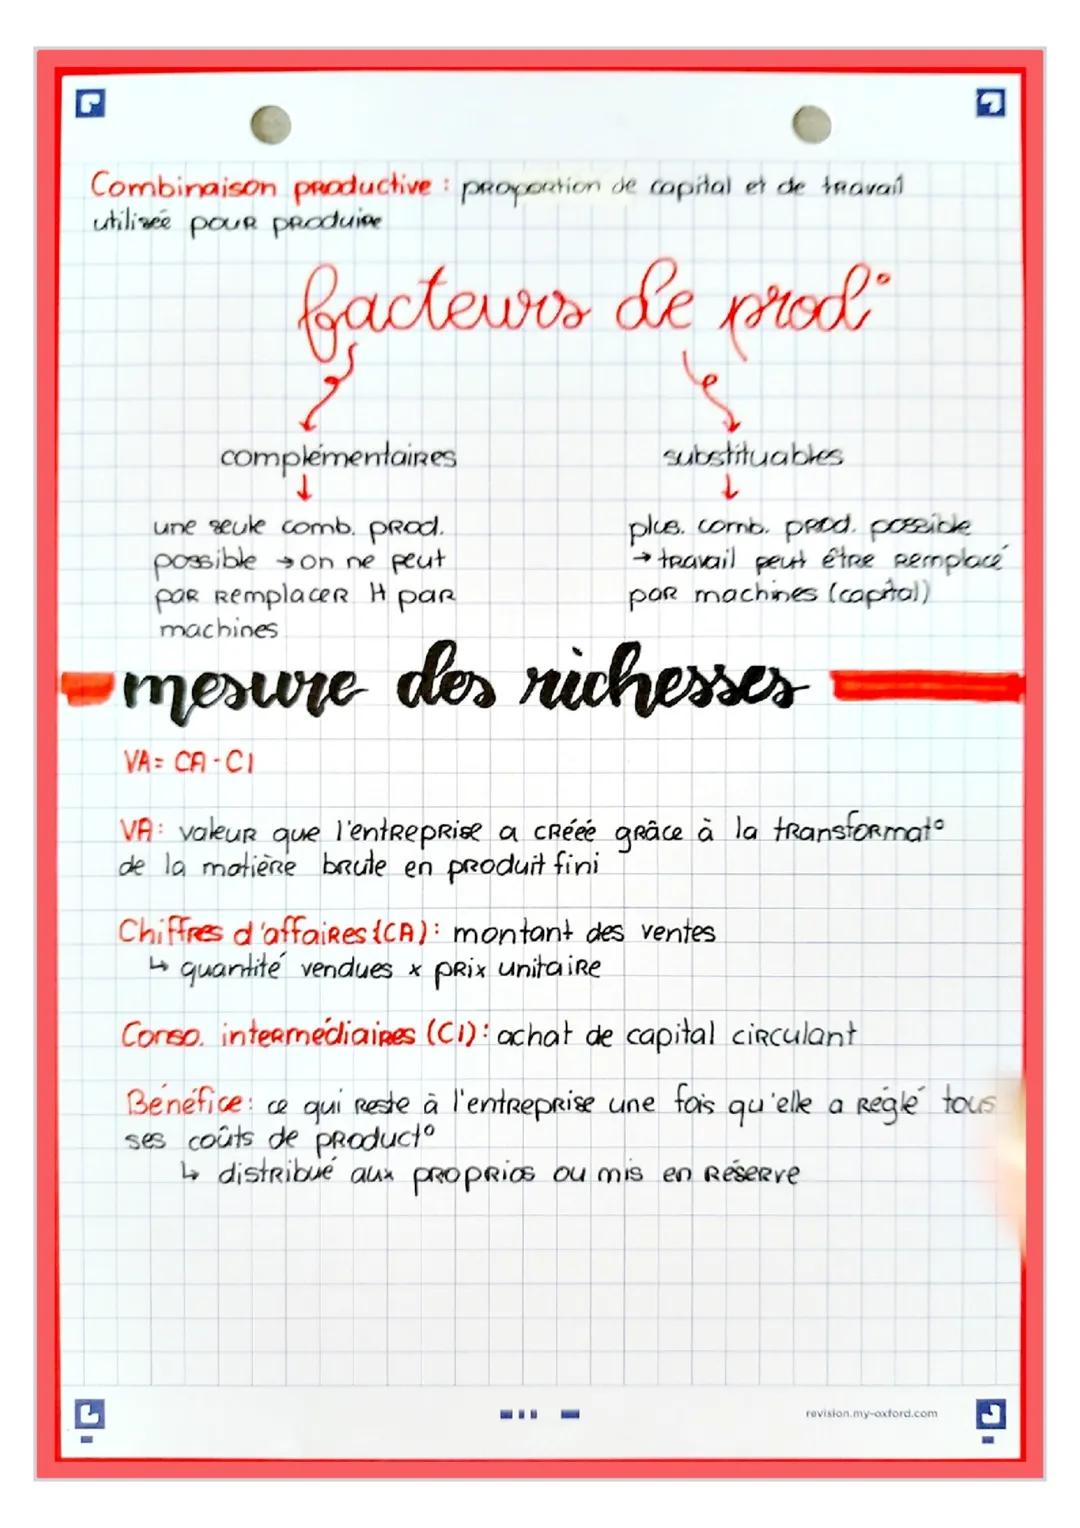 Combinaison productive : proportion de capital et de travail
utilisée pour produire
facteurs de prod°
complémentaires
substituables
↓
↓
une seule comb. prod.
possible → on ne peut
par remplacer H par
machines
plus. comb. prod. possible
→ travail peut être remplacé
par machines (capital)
mesure des richesses
VA = CA - CI
VA : valeur que l'entreprise a créée grâce à la transformat°
de la matière brute en produit fini
Chiffres d'affaires (CA) : montant des ventes
↳ quantité vendues x prix unitaire
Conso. intermédiaires (CI) : achat de capital circulant
Bénéfice : ce qui reste à l'entreprise une fois qu'elle a réglé tous
ses coûts de product°
↳ distribué aux proprios ou mis en réserve
revision.my-oxford.com